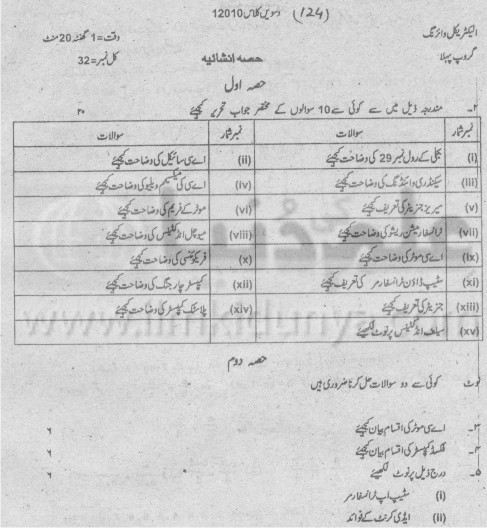 دسویں کلاس 12010 (124)
الیکٹریکل وائرنگ
وقت=1 گھنٹہ 20 منٹ
گروپ پہلا
حصہ انشائیہ
کل نمبر=32
حصہ اول
۲۔ مندرجہ ذیل میں سے کوئی سے 10 سوالوں کے مختصر جواب تحریر کیجئے ۲۰
نمبر شمار سوالات نمبر شمار سوالات
(i) بجلی کے رول نمبر 29 کی وضاحت کیجئے (ii) اے سی سائیکل کی وضاحت کیجئے
(iii) سیکنڈری وائنڈنگ کی وضاحت کیجئے (iv) اے سی کی میکسیمم ویلیو کی وضاحت کیجئے
(v) سیریز جنریٹر کی تعریف کیجئے (vi) موٹر کے فریم کی وضاحت کیجئے
(vii) ٹرانسفارمیشن ریشو کی وضاحت کیجئے (viii) میوچل انڈکٹینس کی وضاحت کیجئے
(ix) اے سی موٹر کی وضاحت کیجئے (x) فریکوئنسی کی وضاحت کیجئے
(xi) سٹیپ ڈاؤن ٹرانسفارمر کی تعریف کیجئے (xii) کپسٹر چارجنگ کی وضاحت کیجئے
(xiii) جنریٹر کی تعریف کیجئے (xiv) پلاسٹک کپسٹر کی وضاحت کیجئے
(xv) سیلف انڈکٹینس پر نوٹ لکھیئے
حصہ دوم
نوٹ کوئی سے دو سوالات حل کرنا ضروری ہیں
۳۔ اے سی موٹر کی اقسام بیان کیجئے ۶
۴۔ فکسڈ کپسٹر کی اقسام بیان کیجئے ۶
۵۔ درج ذیل پر نوٹ لکھیئے ۶
(i) سٹیپ اپ ٹرانسفارمر
(ii) ایڈی کرنٹ کے فوائد